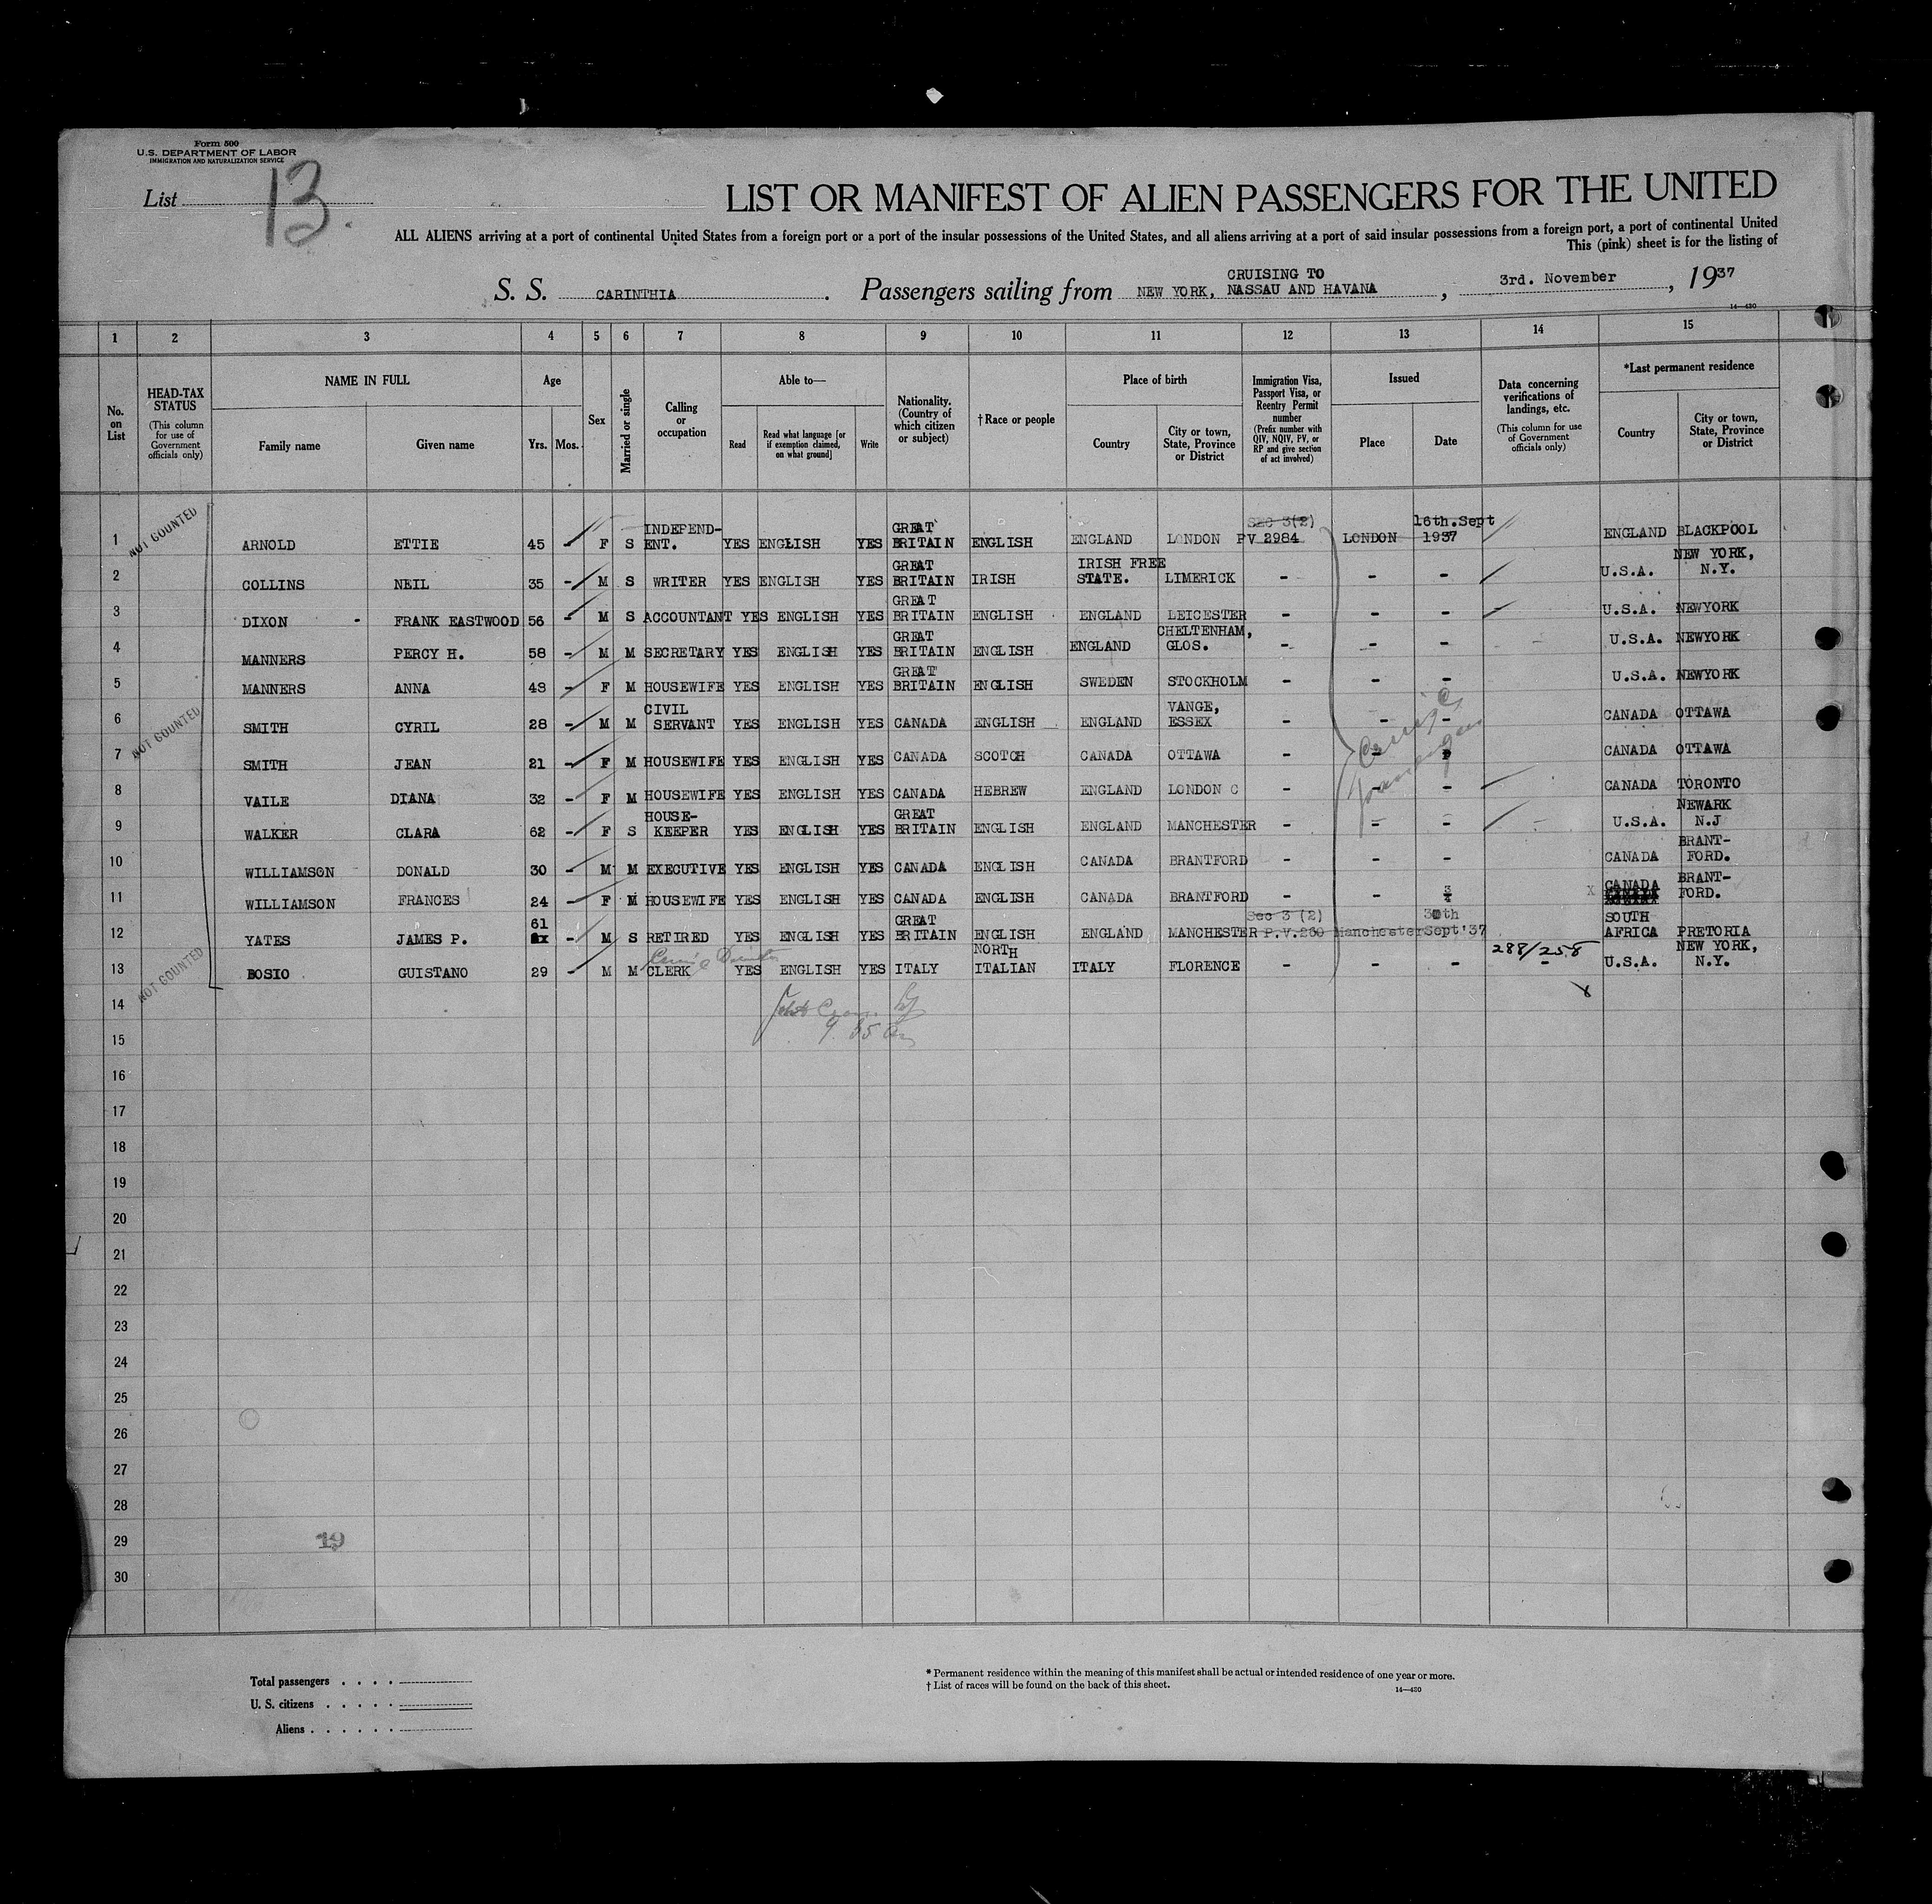 Form 500
U.S. DEPARTMENT OF LABOR
IMMIGRATION AND NATURALIZATION SERVICE
List 13.
LIST OR MANIFEST OF ALIEN PASSENGERS FOR THE UNITED
ALL ALIENS arriving at a port of continental United States from a foreign port or a port of the insular possessions of the United States, and all aliens arriving at a port of said insular possessions from a foreign port, a port of continental United
This (pink) sheet is for the listing of
S. S. CARINTHIA. Passengers sailing from NEW YORK, CRUISING TO NASSAU AND HAVANA, 3rd. November, 1937
14—430
1 2 3 4 5 6 7 8 9 10 11 12 13 14 15
No. on List
HEAD-TAX STATUS (This column for use of Government officials only)
NAME IN FULL Family name Given name
Age Yrs. Mos.
Sex
Married or single
Calling or occupation
Able to— Read Read what language [or if exemption claimed, on what ground] Write
Nationality. (Country of which citizen or subject)
† Race or people
Place of birth Country City or town, State, Province or District
Immigration Visa, Passport Visa, or Reentry Permit number (Prefix number with QIV, NQIV, PV, or RP and give section of act involved)
Issued Place Date
Data concerning verifications of landings, etc. (This column for use of Government officials only)
*Last permanent residence Country City or town, State, Province or District
NOT COUNTED
1 ARNOLD ETTIE 45 - F S INDEPEND- ENT. YES ENGLISH YES GREAT BRITAIN ENGLISH ENGLAND LONDON SEC 3(2) PV 2984 LONDON 16th.Sept 1937 ENGLAND BLACKPOOL
2 COLLINS NEIL 35 - M S WRITER YES ENGLISH YES GREAT BRITAIN IRISH IRISH FREE STATE. LIMERICK - - - U.S.A. NEW YORK, N.Y.
3 DIXON - FRANK EASTWOOD 56 - M S ACCOUNTANT YES ENGLISH YES GREAT BRITAIN ENGLISH ENGLAND LEICESTER - - - U.S.A. NEWYORK
4 MANNERS PERCY H. 58 - M M SECRETARY YES ENGLISH YES GREAT BRITAIN ENGLISH ENGLAND CHELTENHAM, GLOS. - - - U.S.A. NEWYORK
5 MANNERS ANNA 48 - F M HOUSEWIFE YES ENGLISH YES GREAT BRITAIN ENGLISH SWEDEN STOCKHOLM - - - U.S.A. NEWYORK
NOT COUNTED
6 SMITH CYRIL 28 - M M CIVIL SERVANT YES ENGLISH YES CANADA ENGLISH ENGLAND VANGE, ESSEX - - - CANADA OTTAWA
7 SMITH JEAN 21 - F M HOUSEWIFE YES ENGLISH YES CANADA SCOTCH CANADA OTTAWA - - CANADA OTTAWA
8 VAILE DIANA 32 - F M HOUSEWIFE YES ENGLISH YES CANADA HEBREW ENGLAND LONDON - - - CANADA TORONTO
Cruise Passengers
9 WALKER CLARA 62 - F S HOUSE- KEEPER YES ENGLISH YES GREAT BRITAIN ENGLISH ENGLAND MANCHESTER - - - U.S.A. NEWARK N.J
10 WILLIAMSON DONALD 30 - M M EXECUTIVE YES ENGLISH YES CANADA ENGLISH CANADA BRANTFORD - - - CANADA BRANT- FORD.
11 WILLIAMSON FRANCES 24 - F M HOUSEWIFE YES ENGLISH YES CANADA ENGLISH CANADA BRANTFORD - - X CANADA BRANT- FORD.
12 YATES JAMES P. 61 - M S RETIRED YES ENGLISH YES GREAT BRITAIN ENGLISH ENGLAND MANCHESTER Sec 3 (2) P.V.260 Manchester 30th Sept'37 SOUTH AFRICA PRETORIA
NOT COUNTED
13 BOSIO GUISTANO 29 - M M CLERK YES ENGLISH YES ITALY NORTH ITALIAN ITALY FLORENCE - - - 288/258 - U.S.A. NEW YORK, N.Y.
14
15
16
17
18
19
20
21
22
23
24
25
26
27
28
29 19
30
Total passengers . . . .
U. S. citizens . . . . .
Aliens . . . . . .
* Permanent residence within the meaning of this manifest shall be actual or intended residence of one year or more.
† List of races will be found on the back of this sheet.
14—430